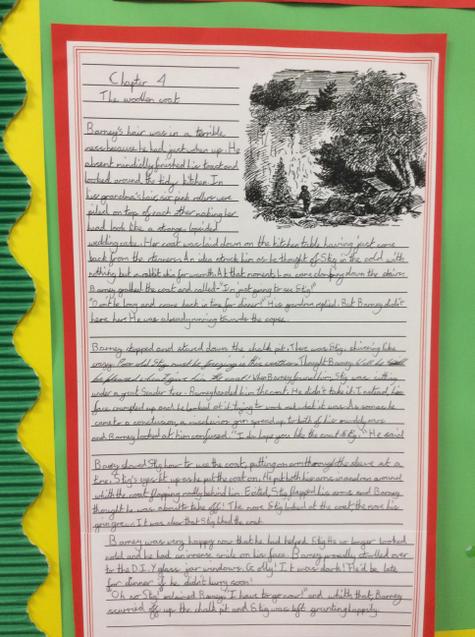 Chapter 4
The woollen coat
Barney's hair was in a terrible
mess because he had just woken up. He
absent mindidly finished his toast and
looked around the tidy kitchen. In
his grandma's hair, six pink rollers were
piled on top of each other making her
head look like a strange lopsided
wedding cake. Her coat was laid down on the kitchen table having just come
back from the cleaners. An idea struck him as he thought of Stig in the cold with
nothing but a rabbit skin for warmth. At that moment Lou came clomping down the stairs.
Barney grabbed the coat and called "I'm just going to see Stig!"
"Don't be long and come back in time for dinner!" His grandma replied. But Barney didn't
hear her. He was already running towards the copse.
Barney stopped and stared down the chalk pit. There was Stig, shivering like
crazy. Poor old Stig must be freezing in this weather. Thought Barney.
be pleased when I give him the coat! When Barney found him, Stig was sitting
under a great tree. Barney handed him the coat. He didn't take it. Instead, his
face crumpled up and he looked at it trying to work out what it was. As soon as he
came to a conclusion, a mischievous grin spread up to both of his muddy ears
and Barney looked at him confused. "I do hope you like the coat Stig." He said
Barney showed Stig how to use the coat, putting an arm through the sleeve at a
time. Stig's eyes lit up as he put the coat on. He put both his arms
with the coat flapping behind him. Excited, Stig flapped his arms and Barney
thought he was about to take off! The more Stig looked at the coat the more his
grin grew. It was clear that Stig liked the coat.
Barney was very happy now that he had helped Stig. He no longer looked
cold and he had an immense smile on his face. Barney proudly strolled over
to the D.I.Y glass jar windows. Golly! It was dark! He'd be late
for dinner if he didn't hurry soon!
"Oh no Stig" exclaimed Barney, "I have to go now!" and with that, Barney
scurried off up the chalk pit and Stig was left grunting happily.